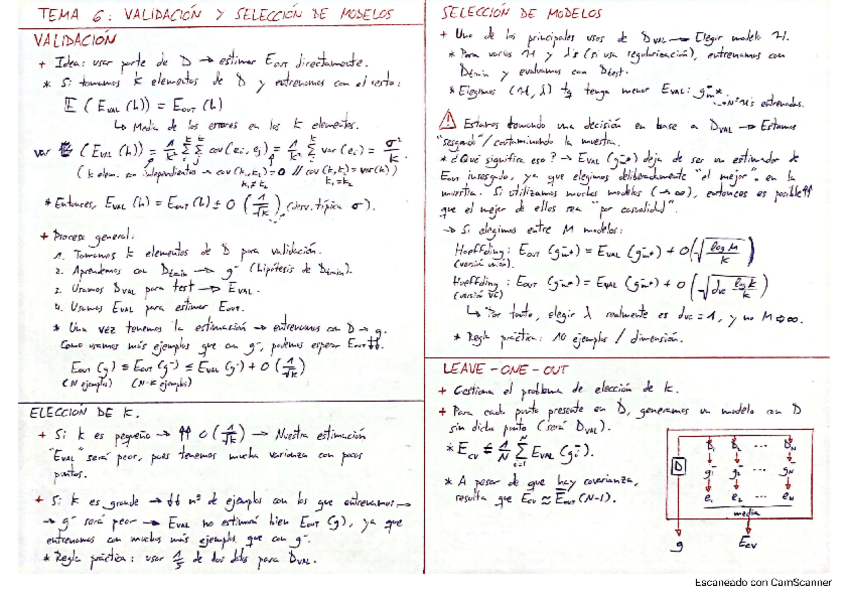 TEMA 6: VALIDACIÓN Y SELECCIÓN DE MODELOS
VALIDACIÓN
+ Idea: usar parte de D → estimar Eout directamente.
* Si tomamos K elementos de D y entrenamos con el resto:
E (EVAL (h)) = EOUT (h)
↳ Media de los errores en los K elementos.
var (EVAL (h)) = 1/K² ∑ ∑ cov(ei, ej) = 1/K² ∑ var (ei) = σ²/K.
(K elem. son independientes → cov(k1,k2) = 0 // cov(k1,k2) = var(k))
k1≠k2 k1=k2
* Entonces, EVAL (h) = EOUT (h) ± O (1/√K) (desv. típica σ).
+ Proceso general.
1. Tomamos K elementos de D para validación.
2. Aprendemos con Dtrain → g⁻ (hipótesis de Dtrain).
3. Usamos DVAL para test → EVAL.
4. Usamos EVAL para estimar EOUT.
* Una vez tenemos la estimación → entrenamos con D → g.
Como usamos más ejemplos que con g⁻, podemos esperar EOUT ↓↓.
EOUT (g) ≤ EOUT (g⁻) ≤ EVAL (g⁻) + O (1/√K)
(N ejemplos) (N-K ejemplos)
ELECCIÓN DE K.
+ Si K es pequeño → ↑↑ O (1/√K) → Nuestra estimación
"EVAL" será peor, pues tenemos mucha varianza con pocos
puntos.
+ Si K es grande → ↓↓ nº de ejemplos con los que entrenamos →
→ g⁻ será peor → EVAL no estimará bien EOUT (g), ya que
entrenamos con muchos más ejemplos que con g⁻.
* Regla práctica: usar 1/5 de los datos para DVAL.
SELECCIÓN DE MODELOS
+ Uno de los principales usos de DVAL → Elegir modelo H.
* Para varios H y λ's (si usa regularización), entrenamos con
Dtrain y evaluamos con Dtest.
* Elegimos (H, λ) tq tenga menor EVAL: g⁻m*.
→ Nº H's entrenados.
⚠ Estamos tomando una decisión en base a DVAL → Estamos
"sesgando"/contaminando la muestra.
* ¿Qué significa eso? → EVAL (g⁻m*) deja de ser un estimador de
EOUT insesgado, ya que elegimos deliberadamente "el mejor" en la
muestra. Si utilizamos muchos modelos (→∞), entonces es posible ↑↑
que el mejor de ellos sea "por casualidad".
→ Si elegimos entre M modelos:
Hoeffding: EOUT (g⁻m*) = EVAL (g⁻m*) + O(√(log M / K))
Hoeffding: EOUT (g⁻m*) = EVAL (g⁻m*) + O(√(dvc log K / K))
(versión VC)
↳ Por tanto, elegir λ realmente es dvc = 1, y no M → ∞.
* Regla práctica: 10 ejemplos / dimensión.
LEAVE-ONE-OUT
+ Gestiona el problema de elección de K.
+ Para cada punto presente en D, generamos un modelo con D
sin dicho punto (será DVAL).
* ECV = 1/N ∑ EVAL (g⁻i).
* A pesar de que hay covarianza,
resulta que ECV ≈ EOUT (N-1).
D D1 D2 ... DN
g⁻1 g⁻2 ... g⁻N
e1 e2 ... eN
media
g ECV
Escaneado con CamScanner